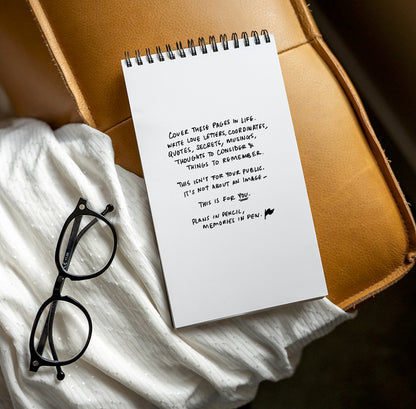 COVER THESE PAGES IN LIFE.
WRITE LOVE LETTERS, COORDINATES,
QUOTES, SECRETS, MUSINGS,
THOUGHTS TO CONSIDER &
THINGS TO REMEMBER.
THIS ISN'T FOR YOUR PUBLIC.
IT'S NOT ABOUT AN IMAGE –
THIS IS FOR YOU.
PLANS IN PENCIL,
MEMORIES IN PEN.